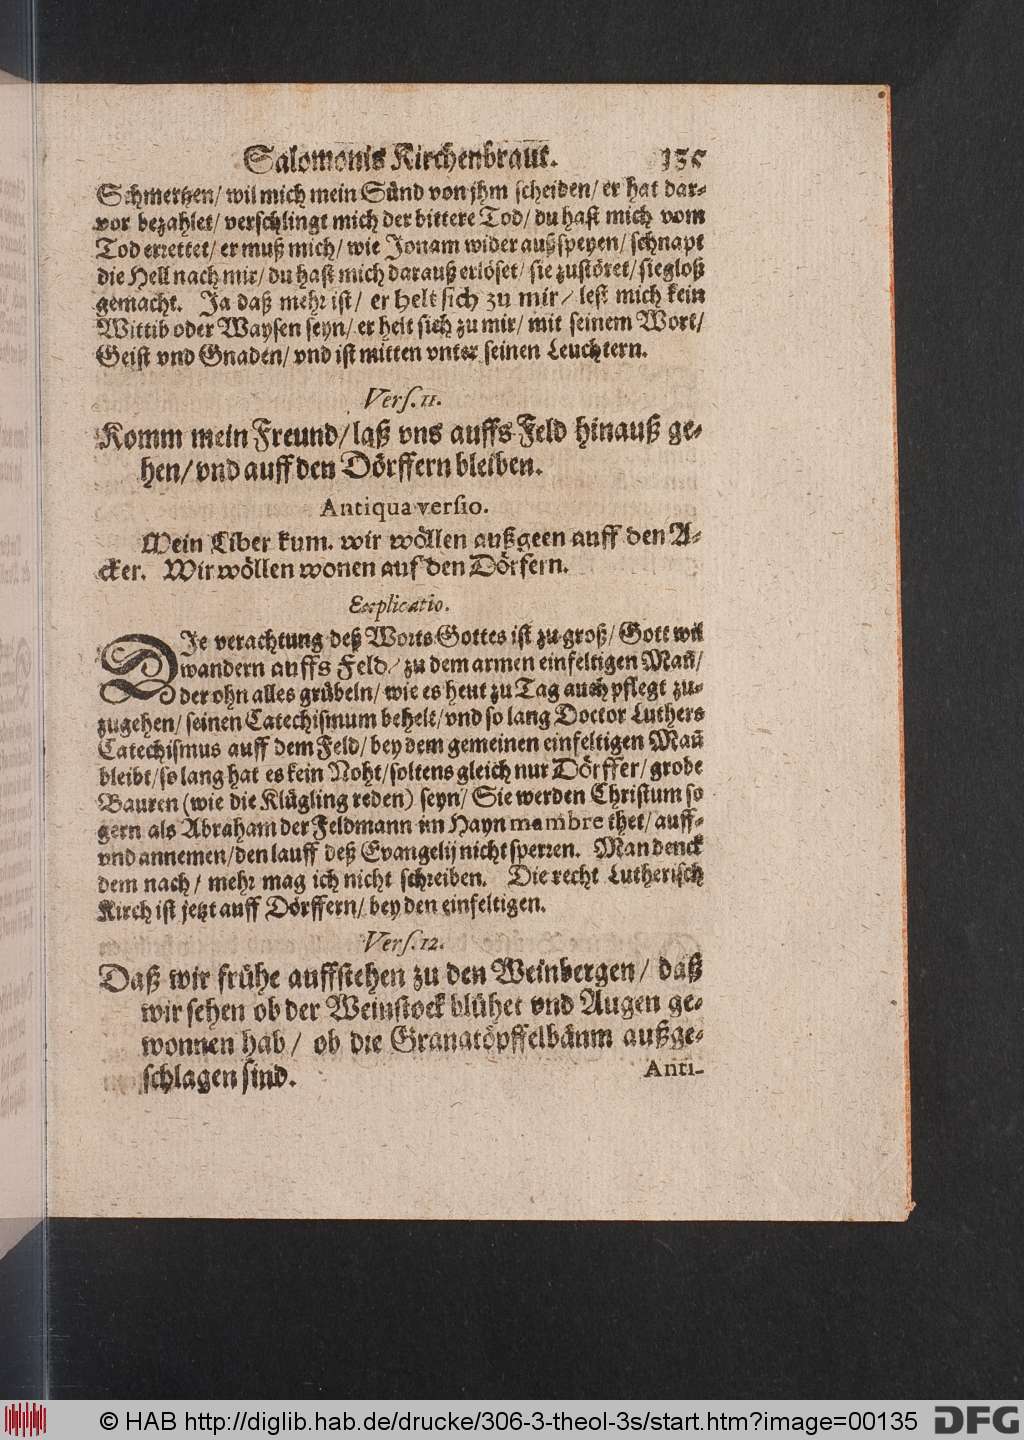 Salomonis Kirchenbraut.
Schmertzen/ wil mich mein Sünd von jhm scheiden/ er hat dar-
vor bezahlet/ verschlingt mich der bittere Tod/ du hast mich vom
Tod errettet/ er muß mich/ wie Jonam wider außspeyen/ schnapt
die Hell nach mir/ du hast mich darauß erlöset/ sie zustöret/ siegloß
gemacht. Ja daß mehr ist/ er helt sich zu mir/ lest mich kein
Wittib oder Waysen seyn/ er helt sich zu mir/ mit seinem Wort/
Geist vnd Gnaden/ vnd ist mitten vnter seinen Leuchtern.
Vers. 11.
Komm mein Freund/ laß vns auffs Feld hinauß ge-
hen/ vnd auff den Dörffern bleiben.
Antiqua versio.
Mein Liber kum. wir wöllen außgeen auff den A-
cker. Wir wöllen wonen auf den Dörfern.
Explicatio.
DIe verachtung deß Worts Gottes ist zu groß/ Gott wil
wandern auffs Feld/ zu dem armen einfeltigen Mañ/
der ohn alles grübeln/ wie es heut zu Tag auch pflegt zu-
zugehen/ seinen Catechismum behelt/ vnd so lang Doctor Luthers
Catechismus auff dem Feld/ bey dem gemeinen einfeltigen Mañ
bleibt/ so lang hat es kein Noht/ soltens gleich nur Dörffer/ grobe
Bauren (wie die Klügling reden) seyn/ Sie werden Christum so
gern als Abraham der Feldmann im Hayn mambre thet/ auff-
vnd annemen/ den lauff deß Evangelij nicht sperren. Man denck
dem nach/ mehr mag ich nicht schreiben. Die recht Lutherisch
Kirch ist jetzt auff Dörffern/ bey den einfeltigen.
Vers. 12.
Daß wir frühe auffstehen zu den Weinbergen/ daß
wir sehen ob der Weinstock blühet vnd Augen ge-
wonnen hab/ ob die Granatöpffelbäum außge-
schlagen sind.
Anti-
© HAB http://diglib.hab.de/drucke/306-3-theol-3s/start.htm?image=00135
DFG